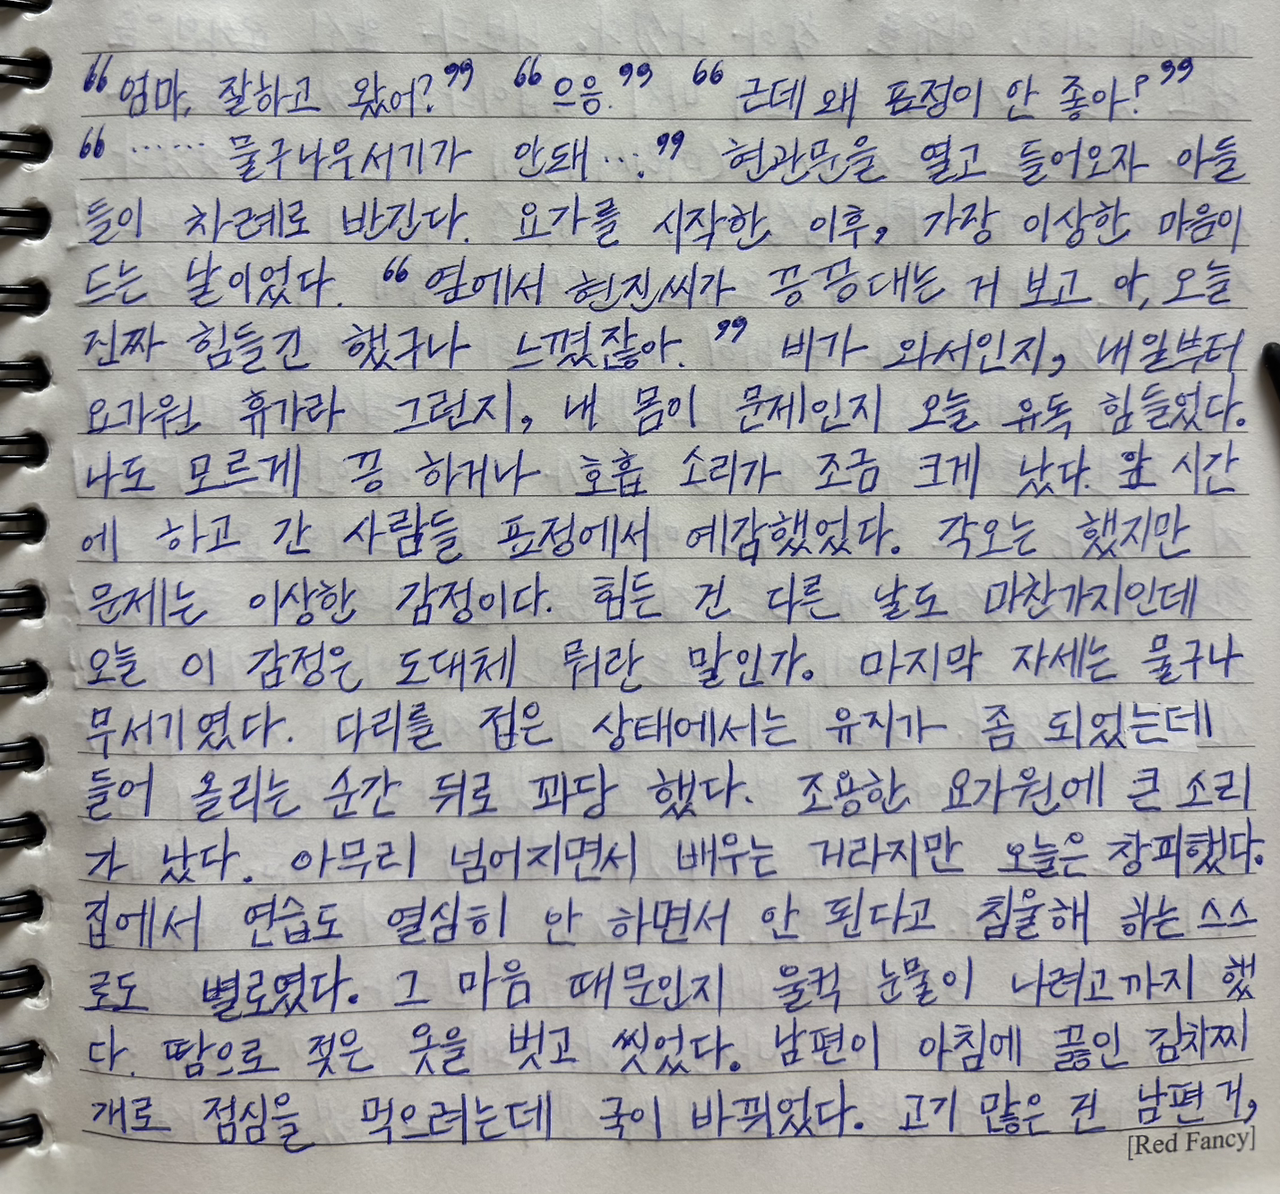 “엄마, 잘하고 왔어?” “으응.” “근데 왜 표정이 안 좋아?”
“…… 물구나무서기가 안돼….” 현관문을 열고 들어오자 아들
들이 차례로 반긴다. 요가를 시작한 이후, 가장 이상한 마음이
드는 날이었다. “옆에서 현진씨가 끙끙대는 거 보고 아, 오늘
진짜 힘들긴 했구나 느꼈잖아.” 비가 와서인지, 내일부터
요가원 휴가라 그런지, 내 몸이 문제인지 오늘 유독 힘들었다.
나도 모르게 끙 하거나 호흡 소리가 조금 크게 났다. 앞 시간
에 하고 간 사람들 표정에서 예감했었다. 각오는 했지만
문제는 이상한 감정이다. 힘든 건 다른 날도 마찬가지인데
오늘 이 감정은 도대체 뭐란 말인가. 마지막 자세는 물구나
무서기였다. 다리를 접은 상태에서는 유지가 좀 되었는데
들어 올리는 순간 뒤로 꽈당 했다. 조용한 요가원에 큰 소리
가 났다. 아무리 넘어지면서 배우는 거라지만 오늘은 창피했다.
집에서 연습도 열심히 안 하면서 안 된다고 침울해 하는 스스
로도 별로였다. 그 마음 때문인지 울컥 눈물이 나려고까지 했
다. 땀으로 젖은 옷을 벗고 씻었다. 남편이 아침에 끓인 김치찌
개로 점심을 먹으려는데 국이 바뀌었다. 고기 많은 건 남편 거,
[Red Fancy]